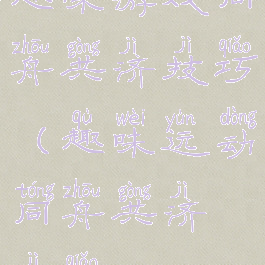 zhōu gòng jì jì qiǎo
舟共济技巧
qù wèi yùn dòng
（趣味运动
tóng zhōu gòng jì
同舟共济
jì qiǎo